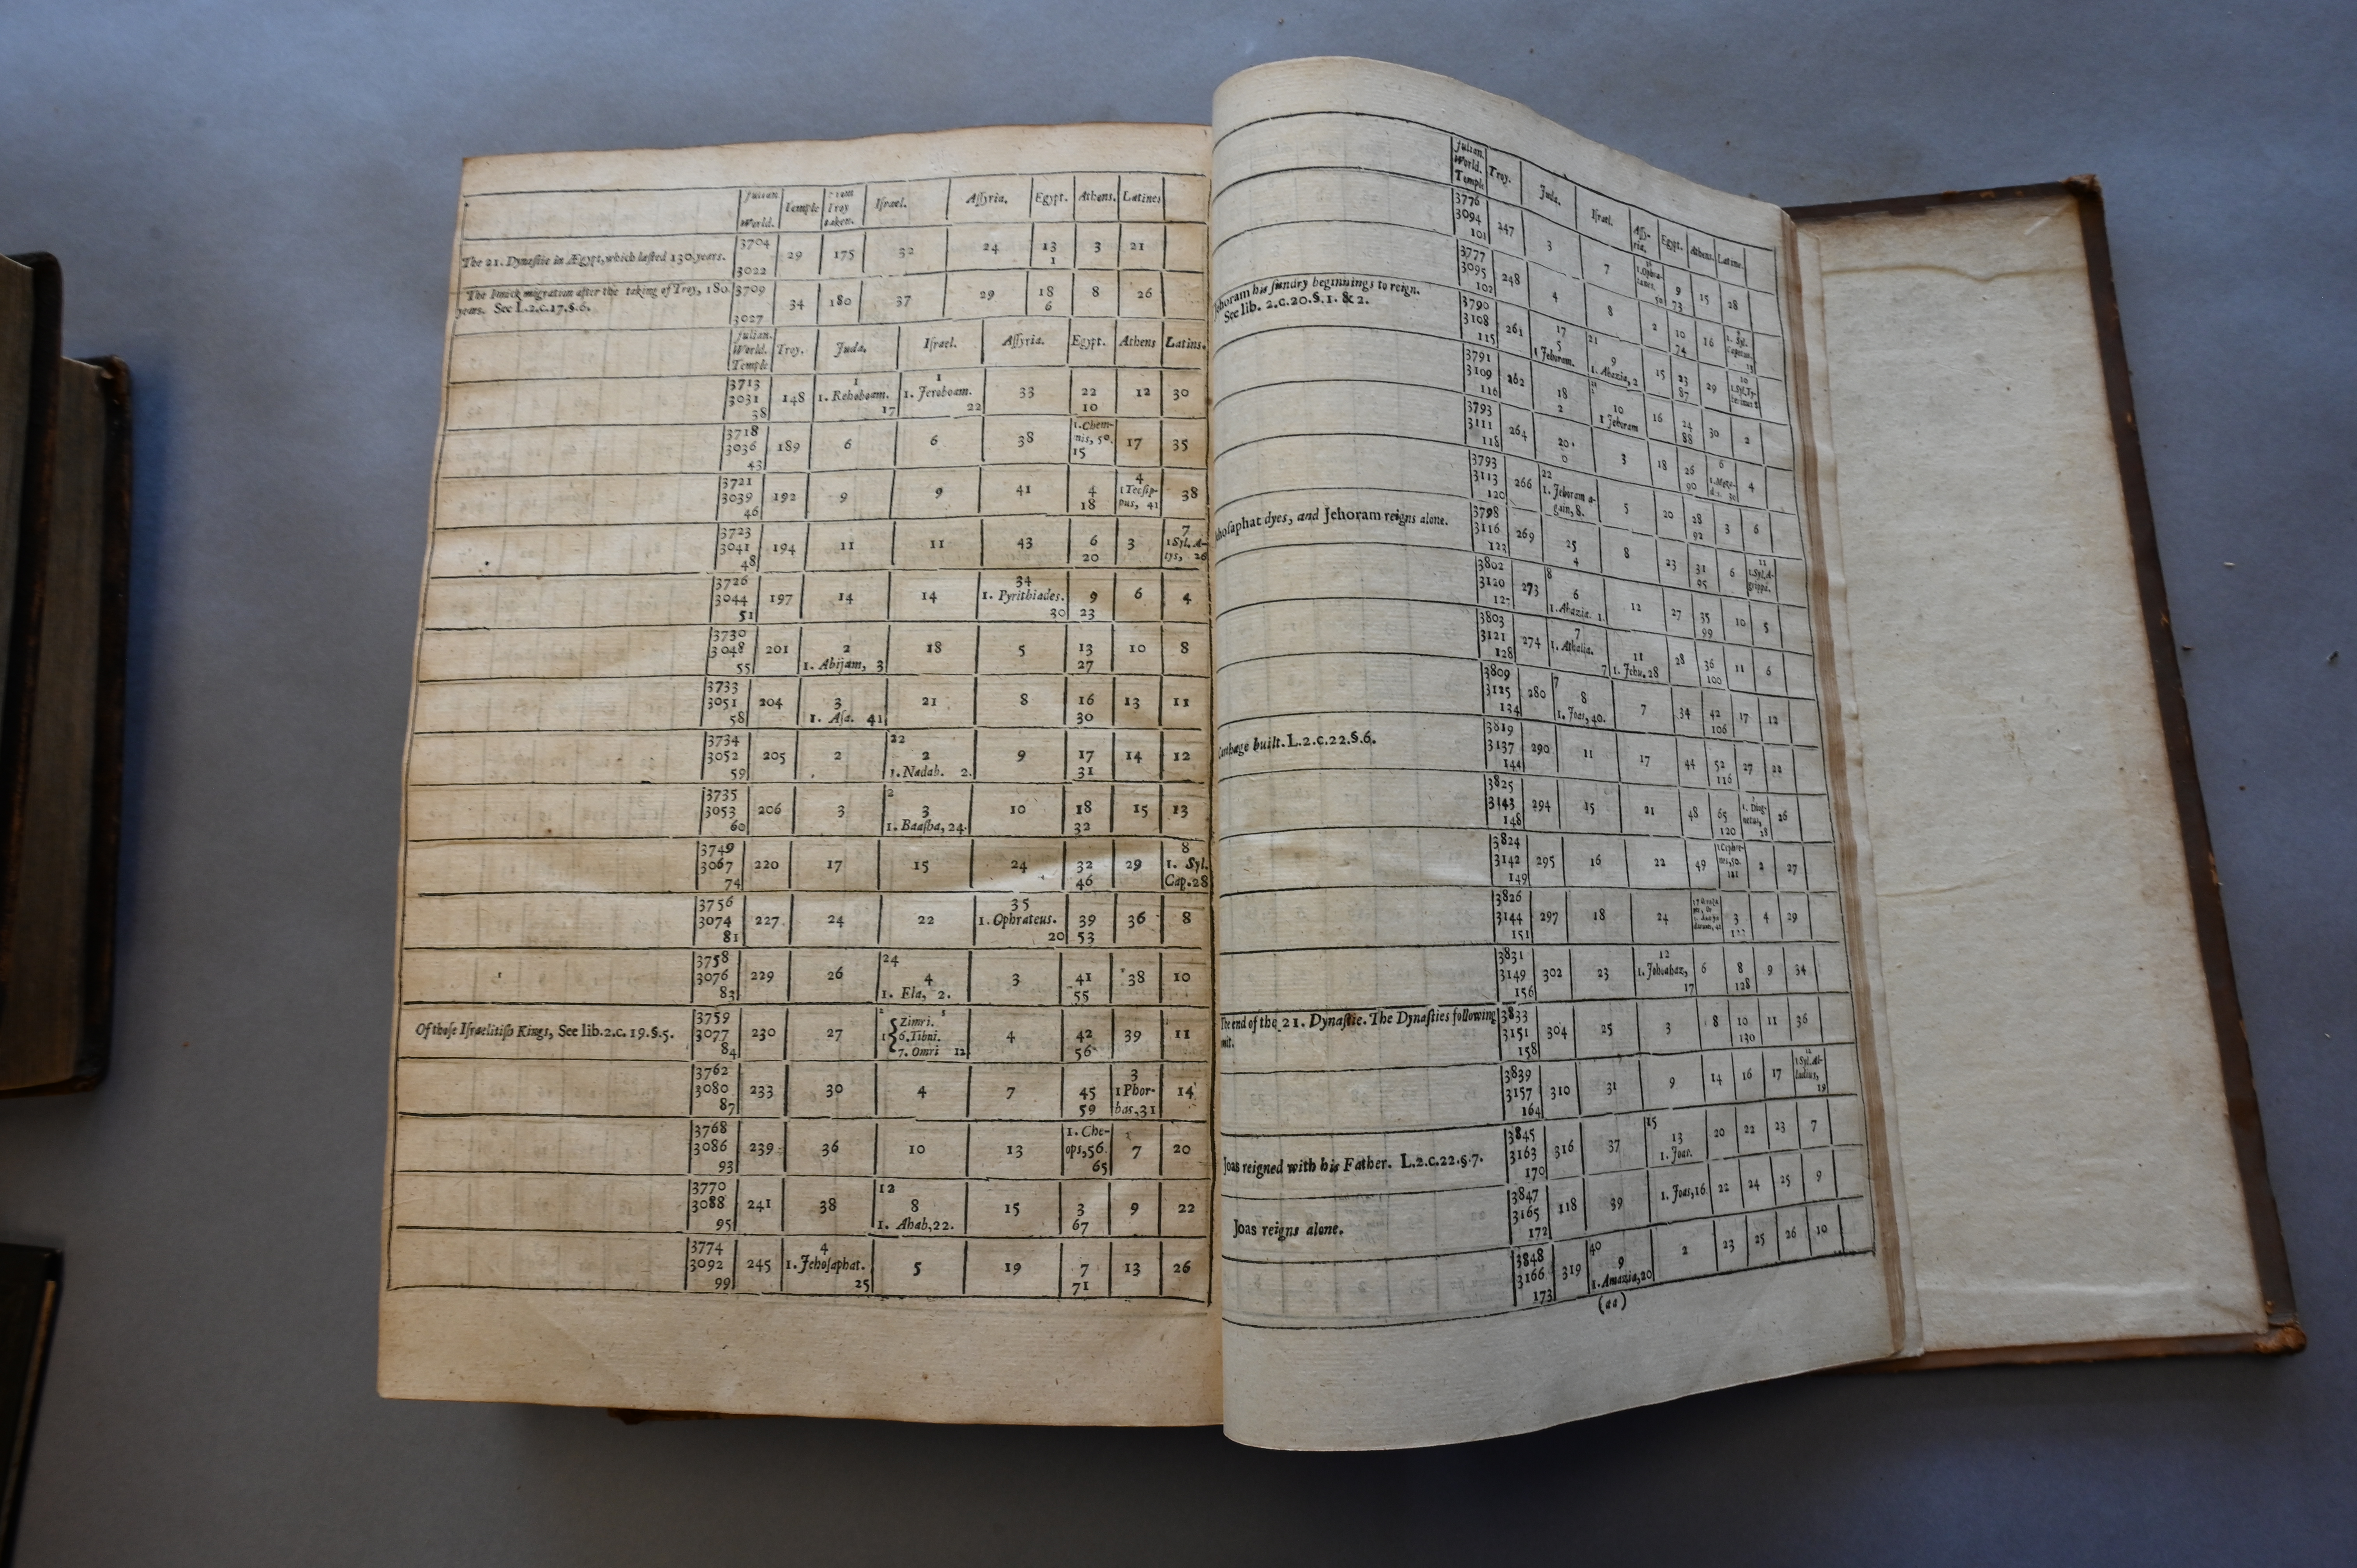 Julian. World. | Temple | Troy taken. | Iſrael. | Aſſyria. | Egypt. | Athens. | Latines
The 21. Dynaſtie in Ægypt, which laſted 130. years. | 3704 3022 | 29 | 175 | 32 | 24 | 13 1 | 3 | 21
The Ionick migration after the taking of Troy, 180. years. See L.2.c.17.§.6. | 3709 3027 | 34 | 180 | 37 | 29 | 18 6 | 8 | 26
Julian. World. Temple | Troy. | Juda. | Iſrael. | Aſſyria. | Egypt. | Athens | Latins.
3713 3031 38 | 148 | 1 1. Rehoboam. 17 | 1 1. Jeroboam. 22 | 33 | 22 10 | 12 | 30
3718 3036 43 | 189 | 6 | 6 | 38 | 1. Chemnis, 50. 15 | 17 | 35
3721 3039 46 | 192 | 9 | 9 | 41 | 4 18 | 4 1 Tecſippus, 41 | 38
3723 3041 48 | 194 | 11 | 11 | 43 | 6 20 | 3 | 7 1 Syl. Atys, 26
3726 3044 51 | 197 | 14 | 14 | 34 1. Pyrithiades. 30 | 9 23 | 6 | 4
3730 3048 55 | 201 | 2 1. Abijam, 3 | 18 | 5 | 13 27 | 10 | 8
3733 3051 58 | 204 | 3 1. Aſa. 41 | 21 | 8 | 16 30 | 13 | 11
3734 3052 59 | 205 | 2 | 22 2 1. Nadab. 2. | 9 | 17 31 | 14 | 12
3735 3053 60 | 206 | 3 | 2 3 1. Baaſha, 24. | 10 | 18 32 | 15 | 13
3749 3067 74 | 220 | 17 | 15 | 24 | 32 46 | 29 | 8 1. Syl. Cap. 28
3756 3074 81 | 227 | 24 | 22 | 35 1. Ophrateus. 20 | 39 53 | 36 | 8
3758 3076 83 | 229 | 26 | 24 4 1. Ela, 2. | 3 | 41 55 | 38 | 10
Of thoſe Iſraelitiſh Kings, See lib.2.c.19.§.5. | 3759 3077 84 | 230 | 27 | Zimri. 6. Tibni. 7. Omri 12 | 4 | 42 56 | 39 | 11
3762 3080 87 | 233 | 30 | 4 | 7 | 45 59 | 3 1 Phorbas, 31 | 14
3768 3086 93 | 239 | 36 | 10 | 13 | 1. Cheops, 56. 65 | 7 | 20
3770 3088 95 | 241 | 38 | 12 8 1. Ahab, 22. | 15 | 3 67 | 9 | 22
3774 3092 99 | 245 | 4 1. Jehoſaphat. 25 | 5 | 19 | 7 71 | 13 | 26
Julian. World. Temple | Troy. | Juda. | Iſrael. | Aſſyria. | Egypt. | Athens. | Latine.
3776 3094 101 | 247 | 3 | 7 | 9 73 | 15 | 28
3777 3095 102 | 248 | 4 | 8 | 2 | 10 74 | 16
Jehoram his ſundry beginnings to reign. See lib. 2.c.20.§.1. & 2. | 3790 3108 115 | 261 | 17 5 1 Jehoram. | 21 9 1. Ahazia, 2 | 15 | 23 87 | 29
3791 3109 116 | 262 | 18 | 10 1 Jehoram | 16 | 24 88 | 30 | 2
3793 3111 118 | 264 | 20 | 3 | 18 | 26 90 | 6 | 4
3793 3113 120 | 266 | 22 1. Jehoram again, 8. | 5 | 20 | 28 92 | 3 | 6
hoſaphat dyes, and Jehoram reigns alone. | 3798 3116 123 | 269 | 25 4 | 8 | 23 | 31 95 | 6 | 11 1 Syl. Agrippa.
3802 3120 127 | 273 | 8 6 1. Ahazia. 1. | 12 | 27 | 35 99 | 10 | 5
3803 3121 128 | 274 | 7 1. Athalia. 7 | 11 1. Jehu. 28 | 28 | 36 100 | 11 | 6
3809 3125 134 | 280 | 7 8 1. Joas, 40. | 7 | 34 | 42 106 | 17 | 12
Carthage built. L.2.c.22.§.6. | 3819 3137 144 | 290 | 11 | 17 | 44 | 52 116 | 27 | 22
3825 3143 148 | 294 | 15 | 21 | 48 | 65 120 | 1. Diognetus, 28 | 26
3824 3142 149 | 295 | 16 | 22 | 49 | 2 | 27
3826 3144 151 | 297 | 18 | 24 | 3 | 4 | 29
3831 3149 156 | 302 | 23 | 12 1. Jehoahaz, 17 | 6 | 8 128 | 9 | 34
The end of the 21. Dynaſtie. The Dynaſties following | 3833 3151 158 | 304 | 25 | 3 | 8 | 10 130 | 11 | 36
mit.
3839 3157 164 | 310 | 31 | 9 | 14 | 16 | 17 | 19
Joas reigned with his Father. L.2.c.22.§.7. | 3845 3163 170 | 316 | 37 | 15 13 1. Joas. | 20 | 22 | 23 | 7
Joas reigns alone. | 3847 3165 172 | 118 | 39 | 1. Joas, 16 | 22 | 24 | 25 | 9
3848 3166 173 | 319 | 40 9 1. Amazia, 20 | 2 | 23 | 25 | 26 | 10
(aa)